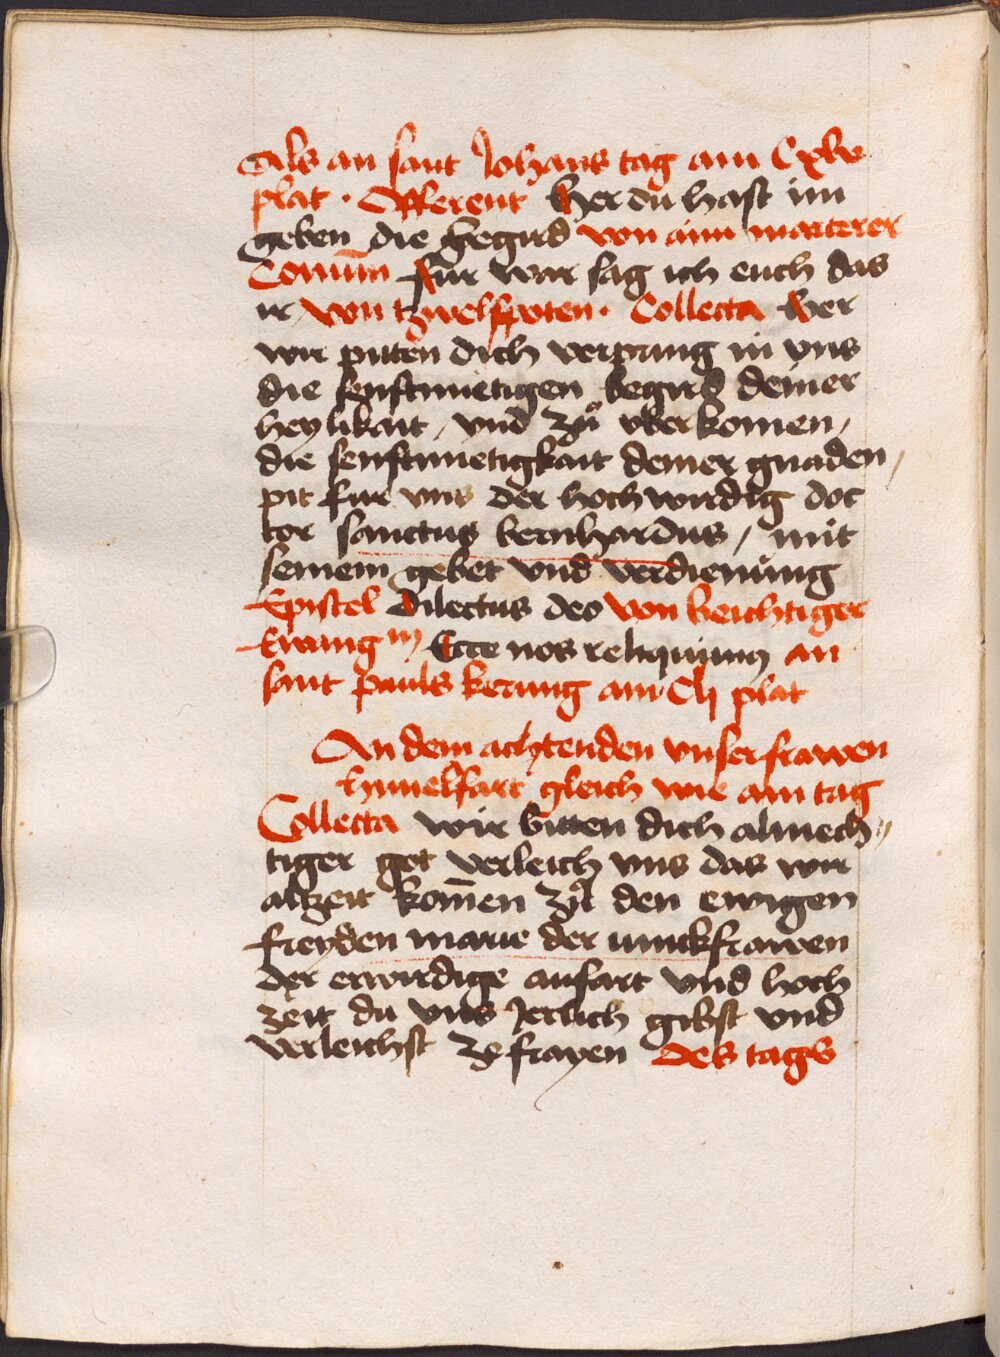 Als an sant Johans tag am Cxlv
plat · Offerent Her du hast im
geben die begird von aim marterer
Comūm für war sag ich euch das
ir von tzwelfpoten · Collecta Her
wir piten dich verpring in vns
die senftmietigen begird deiner
heylikait / vnd zů vberkomen /
die senftmietigkait deiner gnaden /
pit für vns der hochwirdig doc
tor sanctus bernhardus / mit
seinem gebet vnd verdienung
Epistel Dilectus deo von beichtiger
Ewang Ecce nos reliquimus an
sant pauls kerung am Clj plat
An dem achtenden vnser frawen
himelfart gleich wie am tag
Collecta wir bitten dich almech〃
tiger got verleich vns das wir
altzeit kom̄en zů den ewigen
freyden marie der iunckfrawen
der erwirdige aufart vnd hoch
zeit du vns Jerlich gibst vnd
verleichst ze frayen des tags